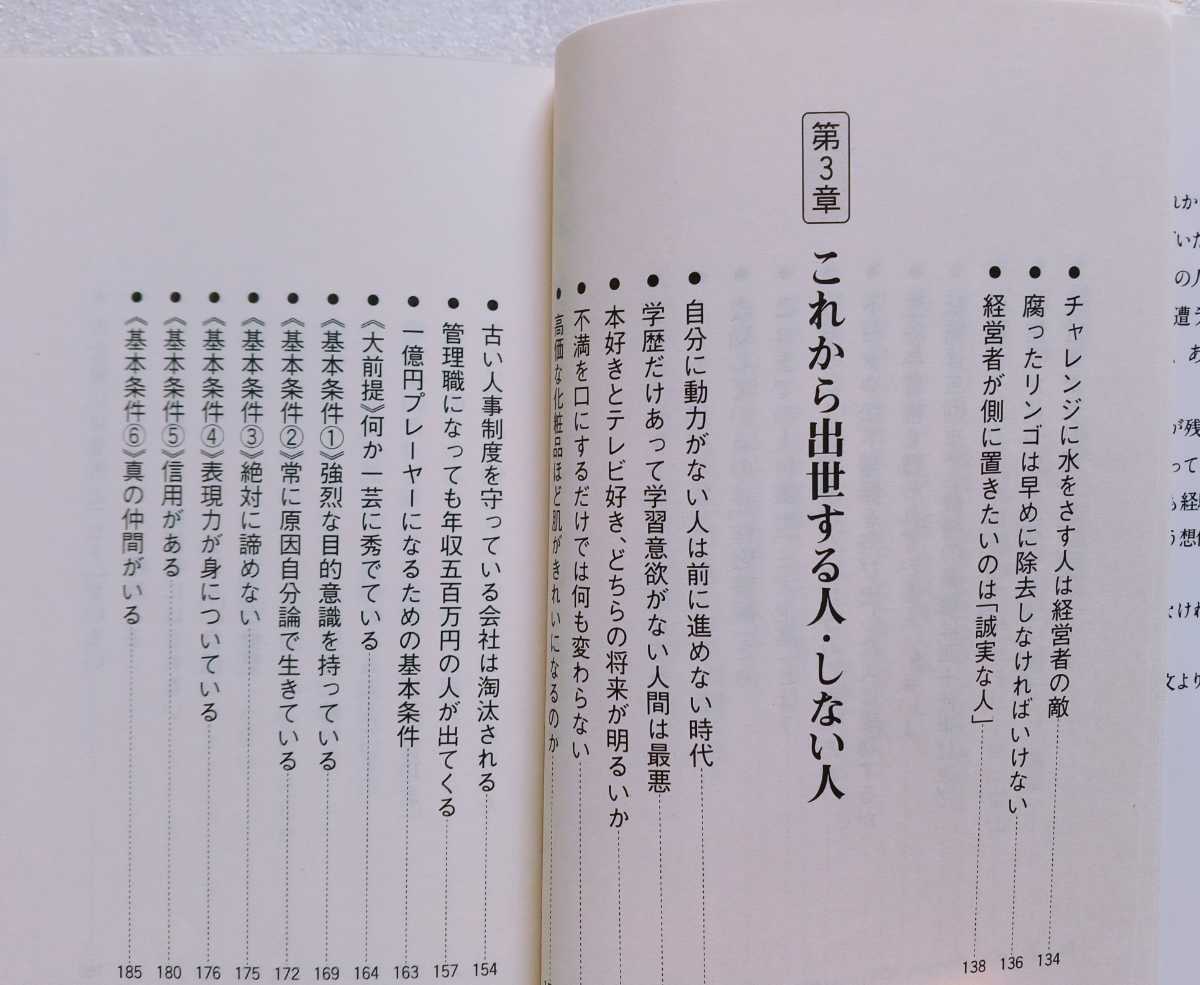 チャレンジに水をさす人は経営者の敵 134
腐ったリンゴは早めに除去しなければいけない 136
経営者が側に置きたいのは「誠実な人」 138
第3章 これから出世する人・しない人
自分に動力がない人は前に進めない時代
学歴だけあって学習意欲がない人間は最悪
本好きとテレビ好き、どちらの将来が明るいか
不満を口にするだけでは何も変わらない
高価な化粧品ほど肌がきれいになるのか
古い人事制度を守っている会社は淘汰される 154
管理職になっても年収五百万円の人が出てくる 157
一億円プレーヤーになるための基本条件 163
《大前提》何か一芸に秀でている 164
《基本条件①》強烈な目的意識を持っている 169
《基本条件②》常に原因自分論で生きている 172
《基本条件③》絶対に諦めない 175
《基本条件④》表現力が身についている 176
《基本条件⑤》信用がある 180
《基本条件⑥》真の仲間がいる 185